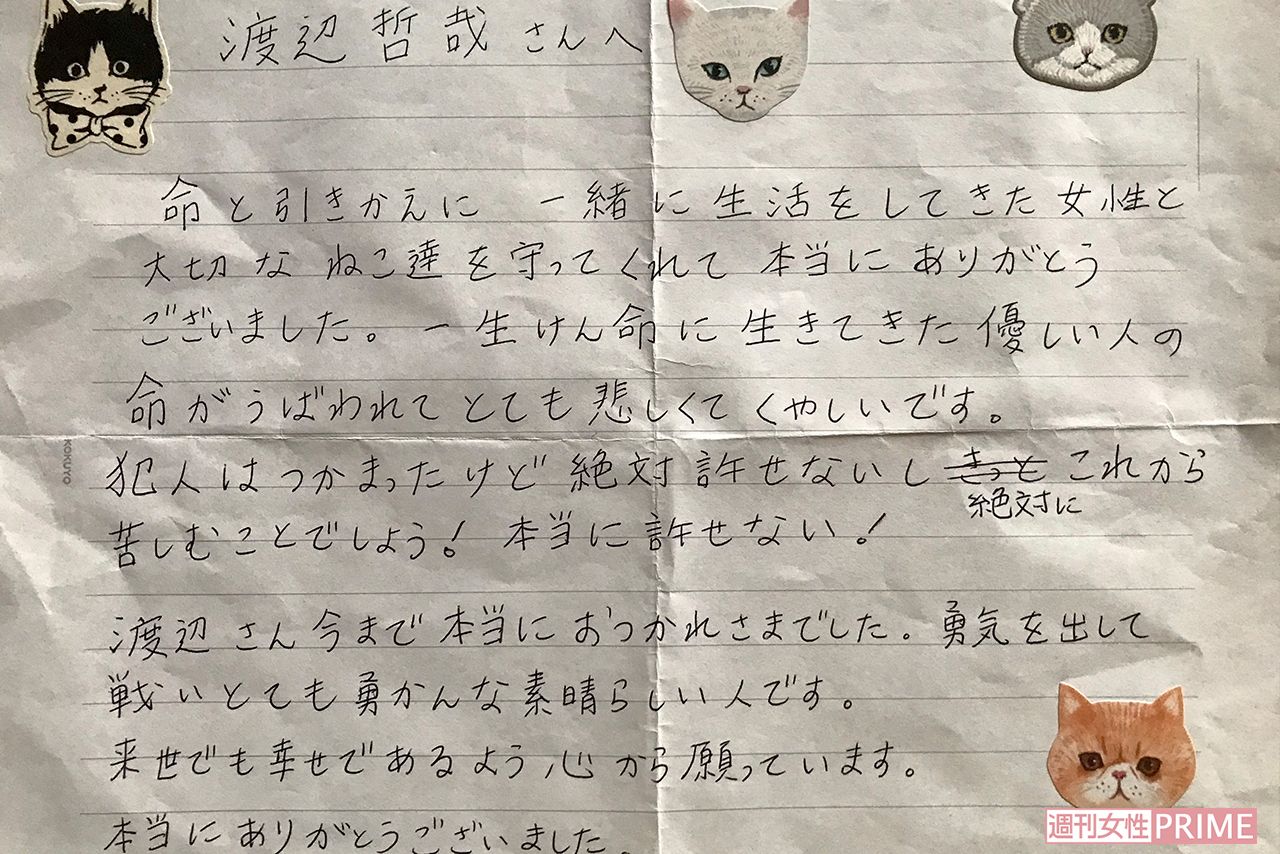 渡辺哲哉さんへ
命と引きかえに 一緒に生活をしてきた女性と
大切なねこ達を守ってくれて本当にありがとう
ございました。一生けん命に生きてきた優しい人の
命がうばわれてとても悲しくてくやしいです。
犯人はつかまったけど絶対許せないしきっとこれから
絶対に
苦しむことでしょう！本当に許せない！
渡辺さん今まで本当におつかれさまでした。勇気を出して
戦いとても勇かんな素晴らしい人です。
来世でも幸せであるよう心から願っています。
本当にありがとうございました。
KOKUYO
週刊女性PRIME